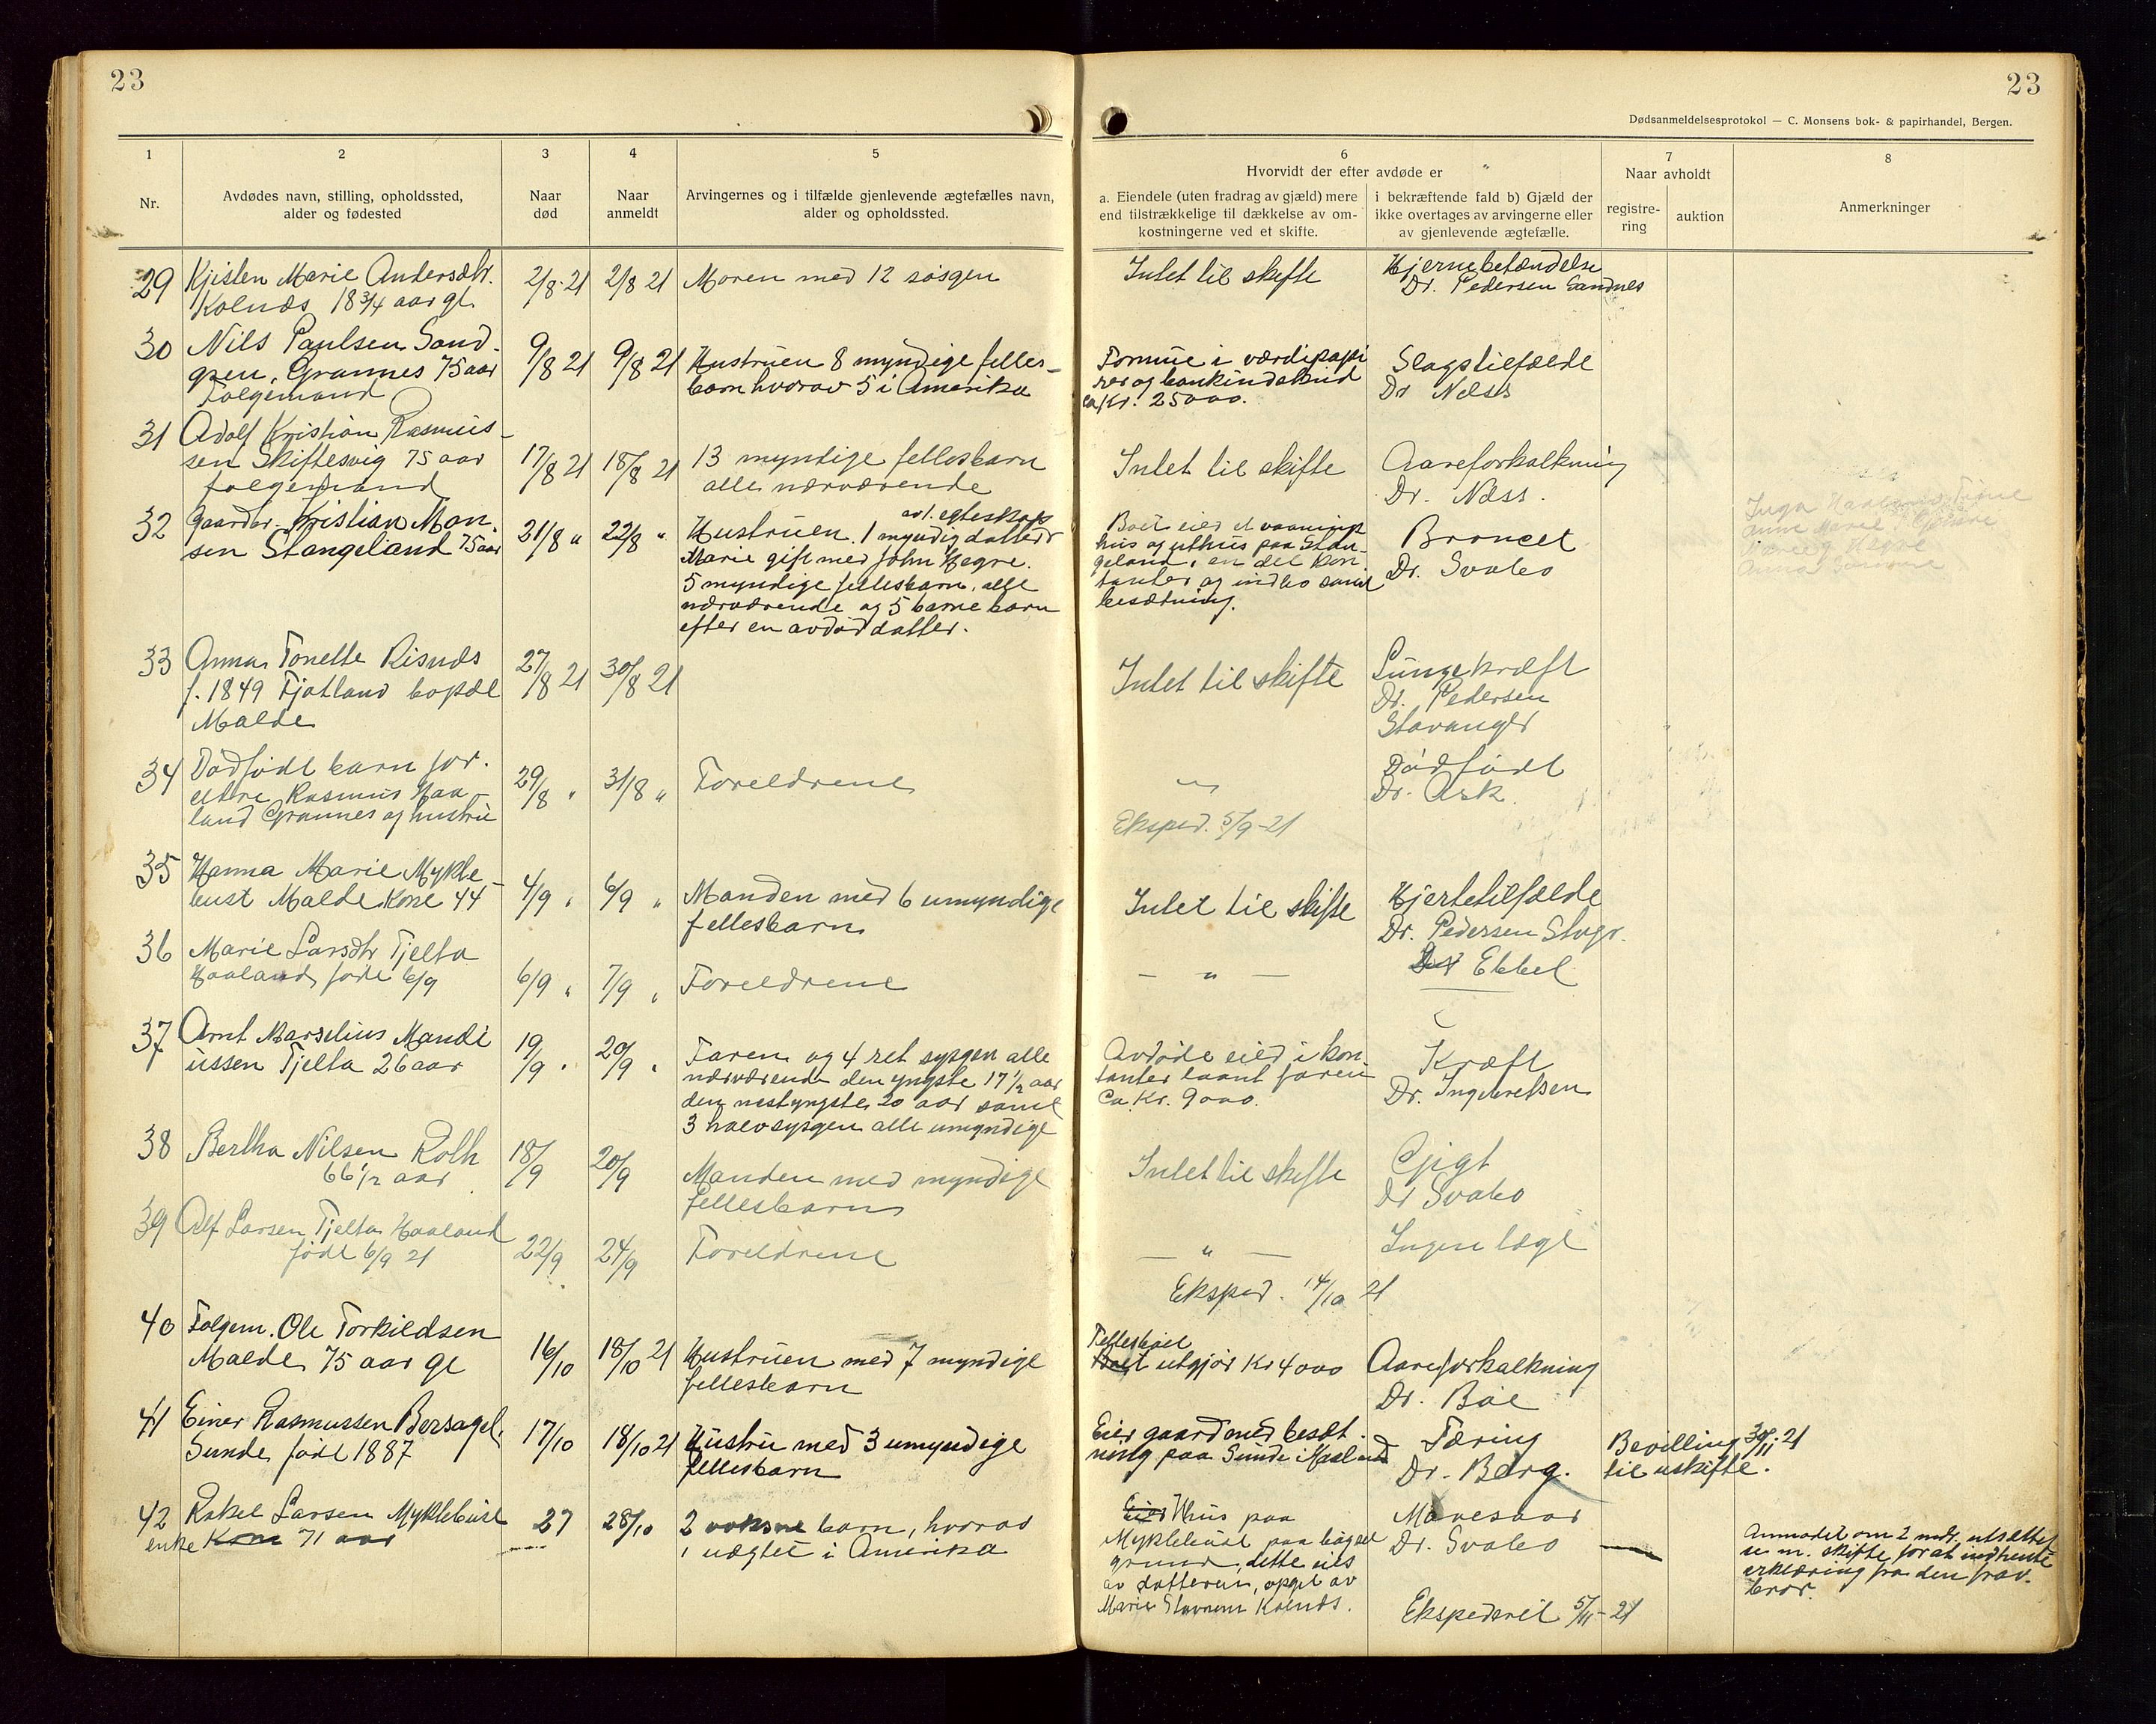 23
23
Dødsanmeldelsesprotokol — C. Monsens bok- & papirhandel, Bergen.
1
2
3
4
5
6
7
8
Nr.
Avdødes navn, stilling, opholdssted,
alder og fødested
Naar
død
Naar
anmeldt
Arvingernes og i tilfælde gjenlevende ægtefælles navn,
alder og opholdssted.
Hvorvidt der efter avdøde er
a. Eiendele (uten fradrag av gjæld) mere
end tilstrækkelige til dækkelse av om-
kostningerne ved et skifte.
i bekræftende fald b) Gjæld der
ikke overtages av arvingerne eller
av gjenlevende ægtefælle.
Naar avholdt
registre-
ring
auktion
Anmerkninger
29 Kjisten Marie Andersdtr.
Kolnæs 18 3/4 aar gl.
2/8 21
2/8 21
Moren med 12 søsgen
Intet til skifte
Hjernebetændelse
Dr. Pedersen Sandnes
30 Nils Paulsen Sand-
gren, Grannes 75 aar
Folgemand
9/8 21
9/8 21
Hustruen 8 myndige felles-
barn hvorav 5 i Amerika
Formue i værdipapi
rer og bankindskud
ca Kr. 25000.
Slagstilfælde
Dr Næss
31 Adolf Kristian Rasmus-
sen Skiftesvig 75 aar
folgemand
17/8 21
18/8 21
13 myndige fellesbarn
alle nærværende
Intet til skifte
Aareforkalkning
Dr. Næss.
32 Gaardbr. Kristian Mon-
sen Stangeland 75 aar
21/8 "
22/8 "
av 1. egteskap
Hustruen. 1 myndig datter
Marie gift med John Hegre.
5 myndige fellesbarn, alle
nærværende og 5 barnebarn
efter en avdød datter.
Boet eier et vaanings
hus og uthus paa Stan-
geland, en del kon-
tanter og indbo samt
besætning.
Broncet
Dr. Svabo
33 Anna Tonette Risnæs
f. 1849 Fjotland bopæl
Malde
27/8 21
30/8 21
Intet til skifte
Lungekræft
Dr. Pedersen
Stavanger
34 Dødfødt barn for-
eldre Rasmus Haa-
land Grannes og hustru
29/8 "
31/8 "
Foreldrene
"
Dødfødt
Dr. Ask.
Eksped. 5/9-21
35 Hanna Marie Mykle-
bust Malde Kone 44
4/9 "
6/9 "
Manden med 6 umyndige
fellesbarn
Intet til skifte
Hjertetilfælde
Dr. Pedersen Stvgr.
36 Marie Larsdtr Tjelta
Haaland født 6/9
6/9 "
7/9 "
Foreldrene
— " —
Dr Ebbel
37 Arnt Marselius Mandi
ussen Tjelta 26 aar
19/9 "
20/9 "
Faren og 4 ret sysgen alle
nærværende den yngste 17 1/2 aar
den nestyngste 20 aar samt
3 halvsysgen alle umyndige
Avdøde eied i kon-
tanter laant faren
Ca. Kr. 9000.
Kræft
Dr. Ingebretsen
38 Bertha Nilsen Roth
66 1/2 aar
18/9
20/9
Manden med myndige
fellesbarn
Intet til skifte
Gigt
Dr Svabo
39 Alf Larsen Tjelta Haaland
født 6/9 21
22/9
24/9
Foreldrene
— " —
Ingen læge
Eksped. 14/10 21
40 Folgem. Ole Torkildsen
Malde 75 aar gl
16/10
18/10 21
Hustruen med 7 myndige
fellesbarn
Fellesboet
Boet utgjør Kr 4000
Aareforkalkning
Dr. Bøe
41 Einer Rasmussen Bersagel
Sunde født 1887
17/10
18/10 21
Hustru med 3 umyndige
fellesbarn
Eier gaard med besæt-
ning paa Sunde i Haaland
Tæring
Dr. Berg.
Bevilling 30/11-21
til uskifte.
42 Rakel Larsen Myklebust
enke Kone 71 aar
27
28/10
2 voksne barn, hvorav
1 uægtet i Amerika
Eier Hus paa
Myklebust paa bøgsel
grund, dette eies
av datteren, opget av
Marie Stavnem Kolnæs.
Mavesaar
Dr. Svabo
Anmodet om 2 mdr. utsættel
se m. skifte for at indhente
erklæring fra den frav.
bror.
Ekspederet 5/11-21